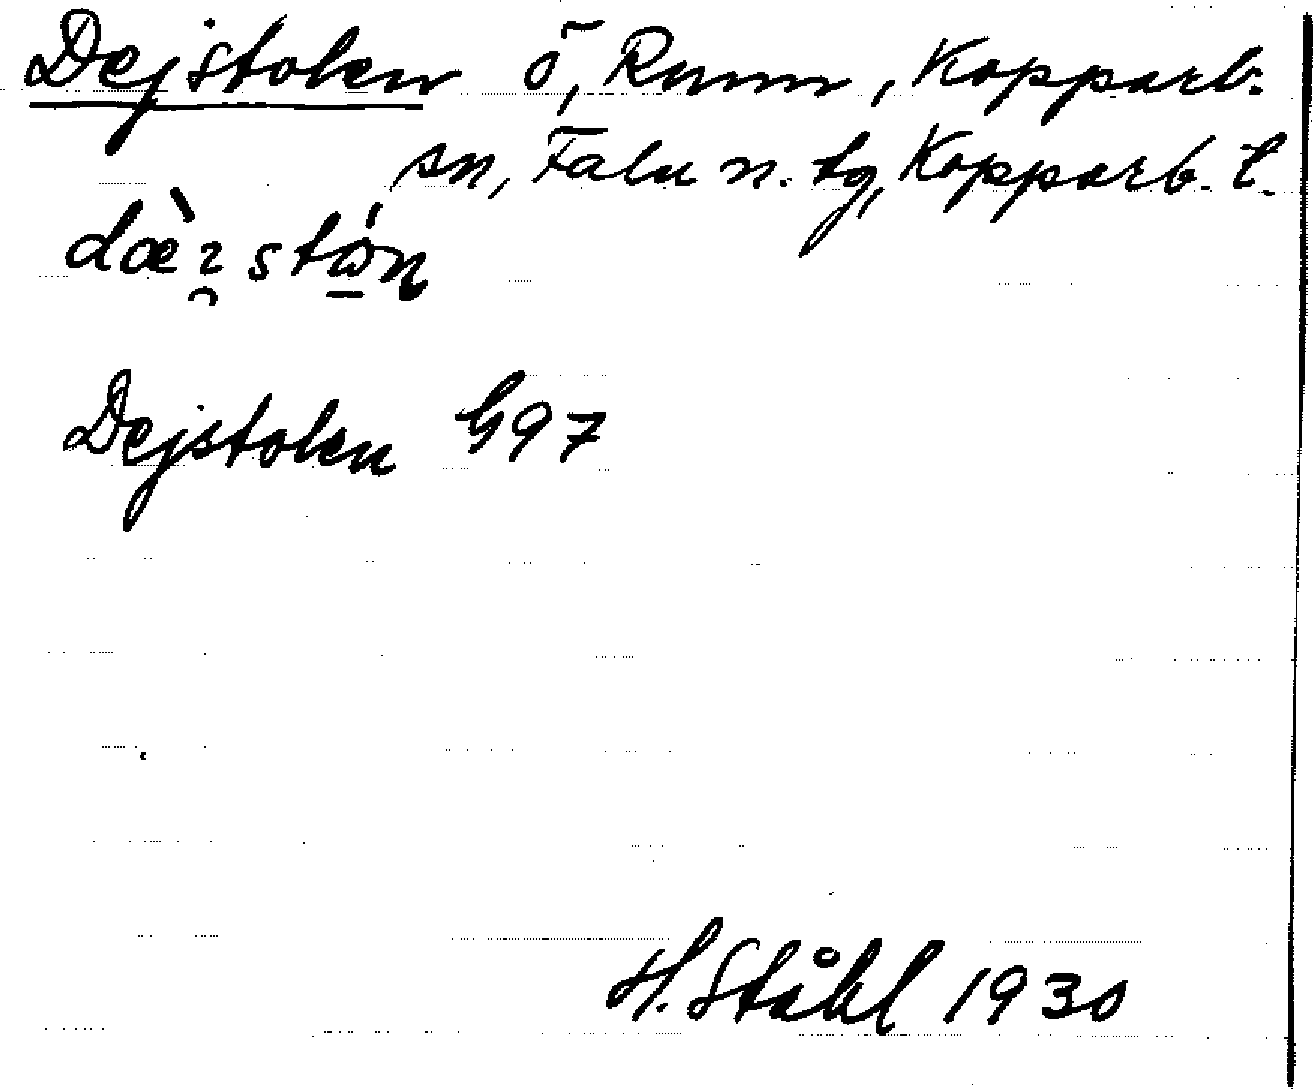 Dejstolen ö, Runn, Kopparb.
sn, Falu n. tg, Kopparb. l.
Dejstolen G97
H. Ståhl 1930